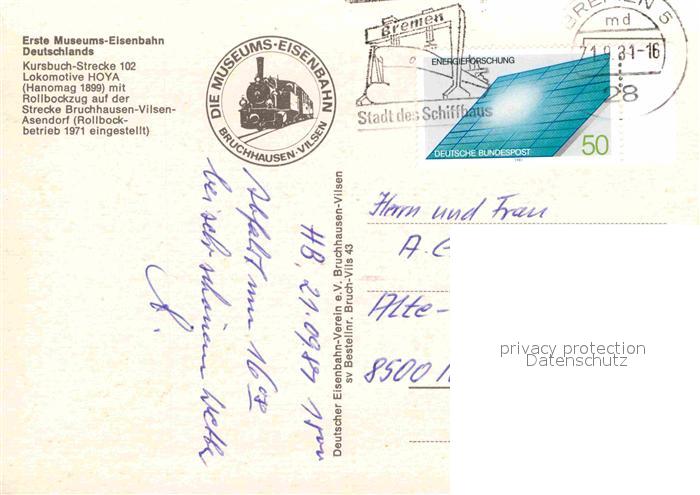 Erste Museums-Eisenbahn
Deutschlands
Kursbuch-Strecke 102
Lokomotive HOYA
(Hanomag 1899) mit
Rollbockzug auf der
Strecke Bruchhausen-Vilsen-
Asendorf (Rollbock-
betrieb 1971 eingestellt)
DIE MUSEUMS-EISENBAHN
BRUCHHAUSEN-VILSEN
Bremen
Stadt des Schiffbaus
BREMEN 5
md
-16
28
ENERGIEFORSCHUNG
DEUTSCHE BUNDESPOST
50
HB, 21.09.81
Abfahrt um 16
bei sehr schönem Wetter
Deutscher Eisenbahn-Verein e.V. Bruchhausen-Vilsen
sv Bestellnr. Bruch-Vils 43
Herrn und Frau
A.
Alte-
8500
privacy protection
Datenschutz